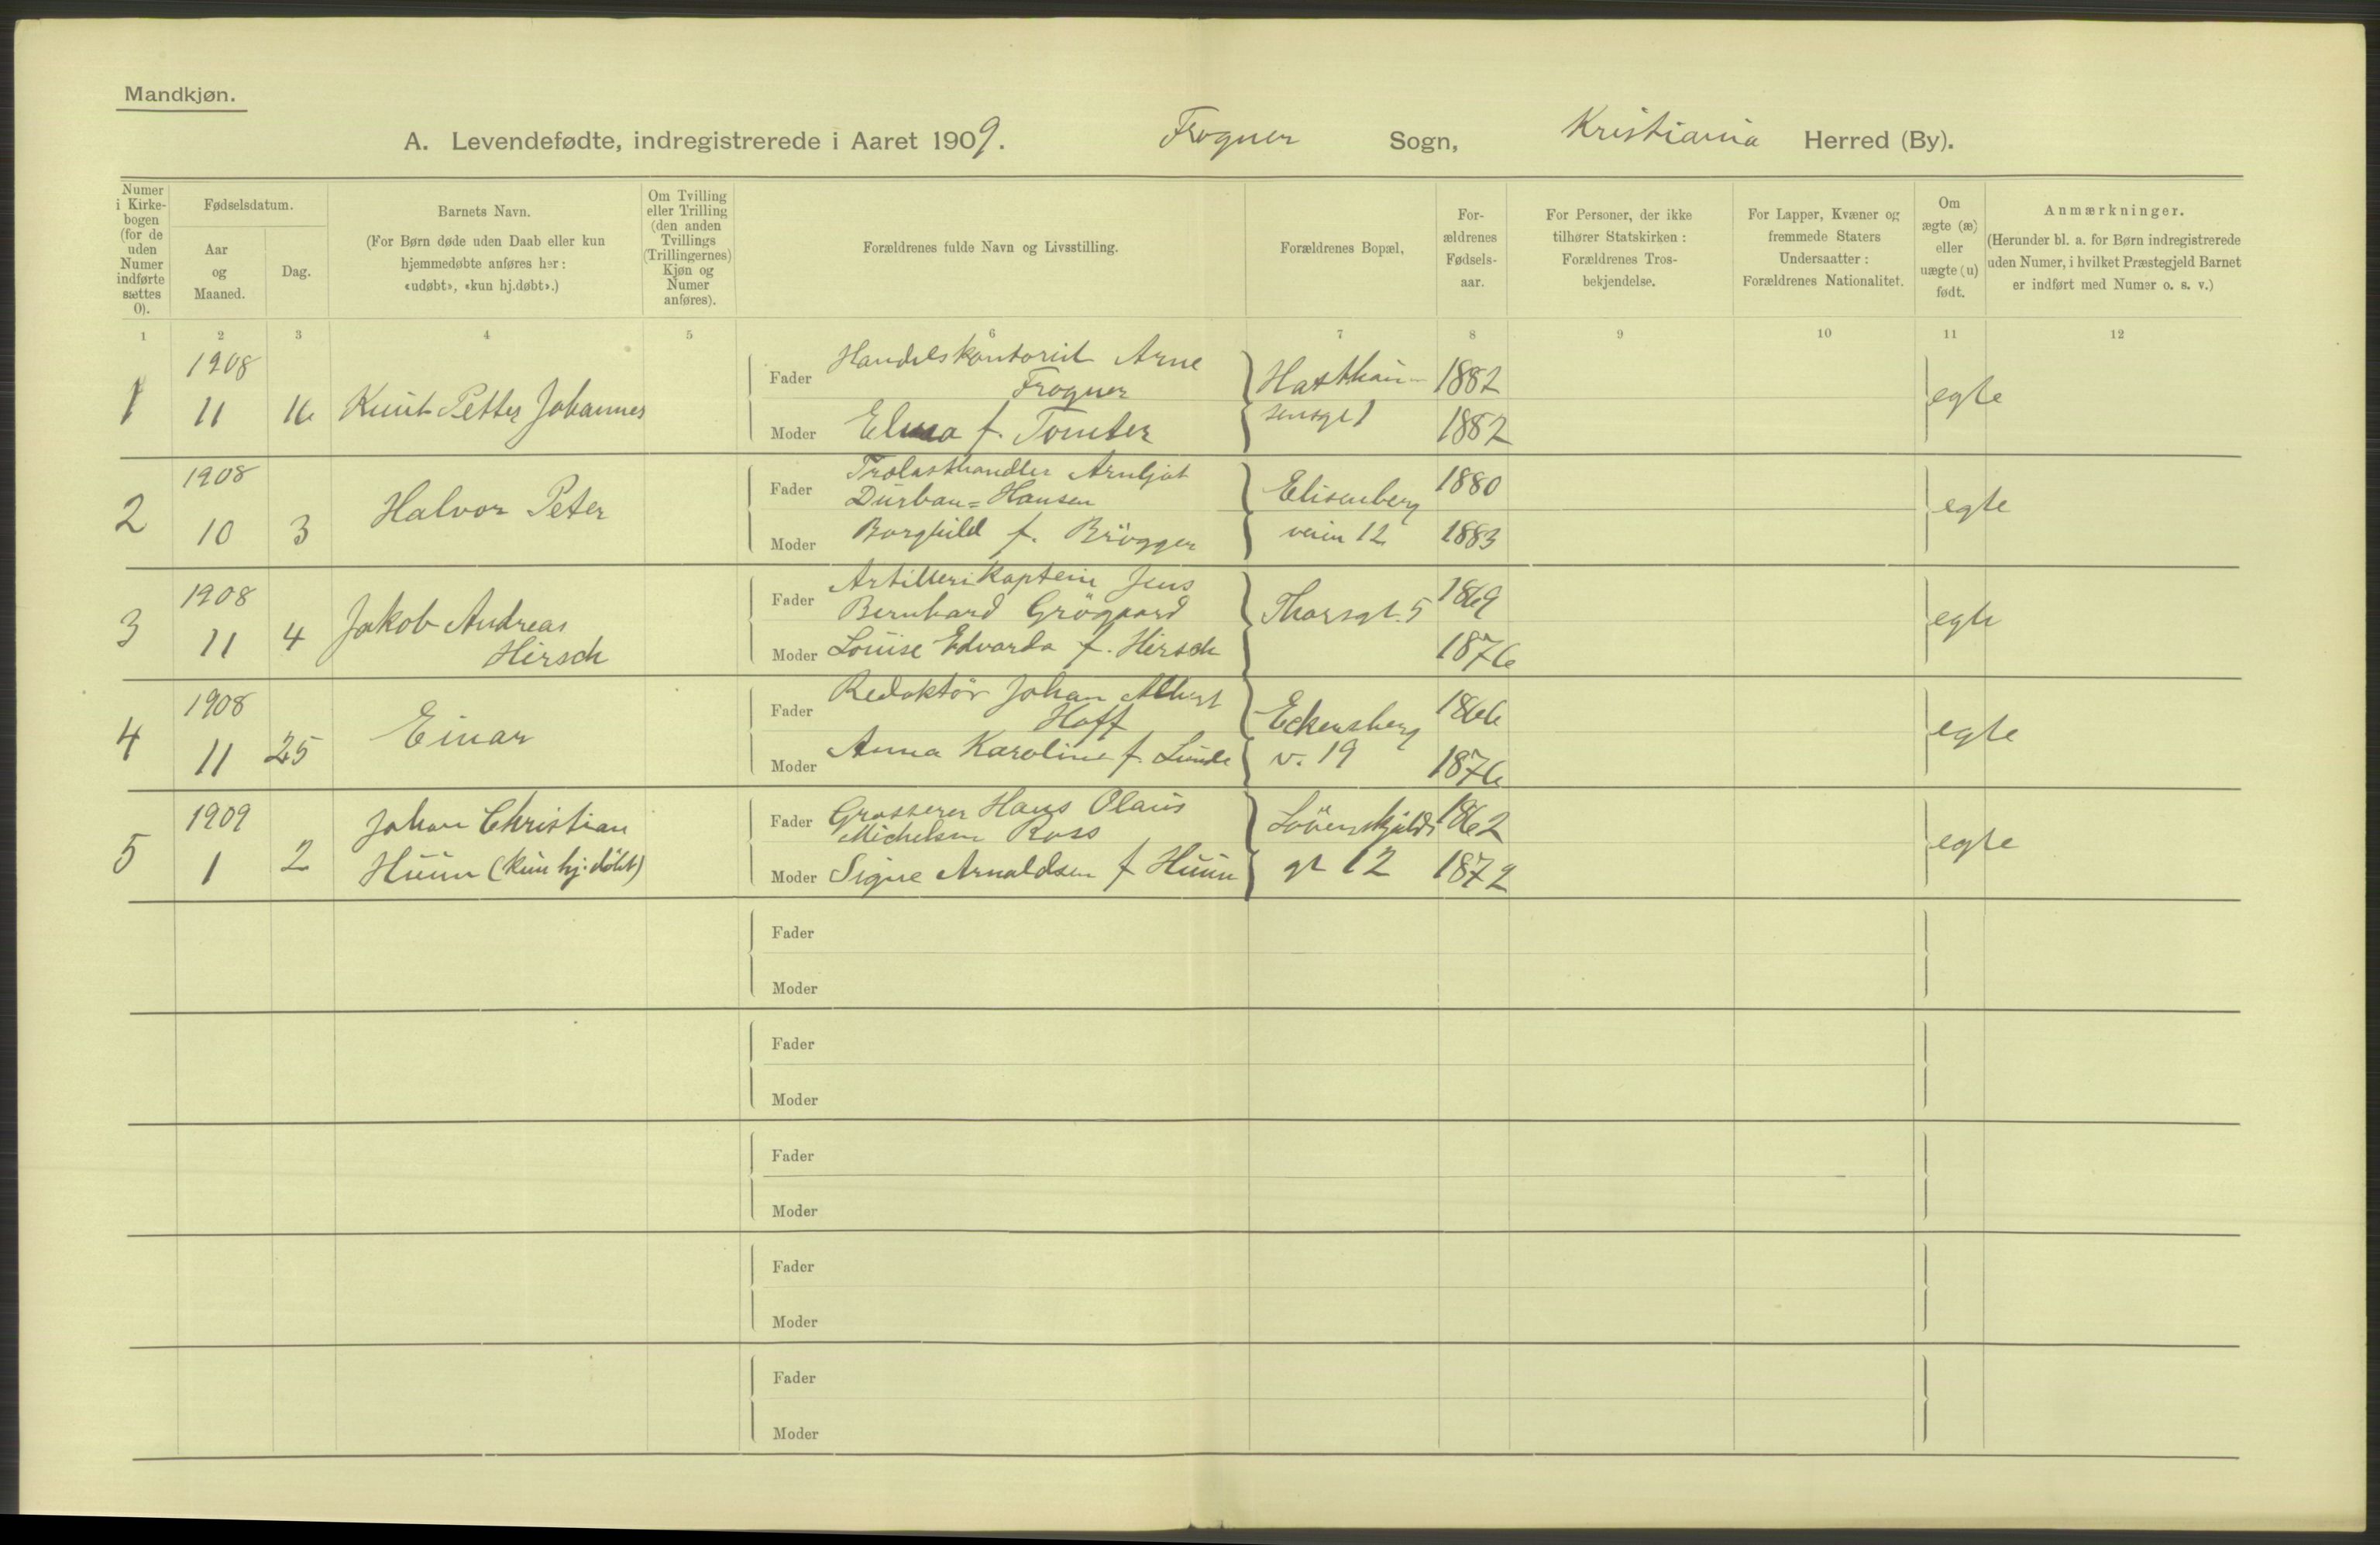 Mandkjøn.
A. Levendefødte, indregistrerede i Aaret 1909. Frogner Sogn, Kristiania Herred (By).
Numer i Kirkebogen (for de uden Numer indførte sættes 0).
Fødselsdatum.
Aar og Maaned.
Dag.
Barnets Navn.
(For Børn døde uden Daab eller kun hjemmedøbte anføres her: «udøbt», «kun hj.døbt».)
Om Tvilling eller Trilling (den anden Tvillings (Trillingernes) Kjøn og Numer anføres).
Forældrenes fulde Navn og Livsstilling.
Forældrenes Bopæl,
Forældrenes Fødselsaar.
For Personer, der ikke tilhører Statskirken: Forældrenes Trosbekjendelse.
For Lapper, Kvæner og fremmede Staters Undersaatter: Forældrenes Nationalitet.
Om ægte (æ) eller uægte (u) født.
Anmærkninger.
(Herunder bl. a. for Børn indregistrerede uden Numer, i hvilket Præstegjeld Barnet er indført med Numer o. s. v.)
1 2 3 4 5 6 7 8 9 10 11 12
1 1908 11 16 Knut Petter Johannes
Fader Handelskontorist Arne Frogner
Moder f. Tomter
1882
1882
egte
2 1908 10 3 Halvor Peter
Fader Trælasthandler Arnljot
Durban=Hansen
Moder Borghild f. Brögger
Elisenberg
veien 12
1880
1883
egte
3 1908 11 4 Jakob Andreas
Hirsch
Fader Artillerikaptein Jens
Bernhard Grögaard
Moder Louise Edvarda f. Hirsch
Thorsgt. 5
1869
1876
egte
4 1908 11 25 Einar
Fader Redaktör Johan Albert
Hoff
Moder Anna Karoline f. Lunde
Eckersberg
v. 19
1866
1876
egte
5 1909 1 2 Johan Christian
Huun (kun hj. döbt)
Fader Grosserer Hans Olaus
Michelsen Ross
Moder Signe Arnaldsen f Huun
Lövenskjolds
gt 12
1862
1872
egte
Fader
Moder
Fader
Moder
Fader
Moder
Fader
Moder
Fader
Moder